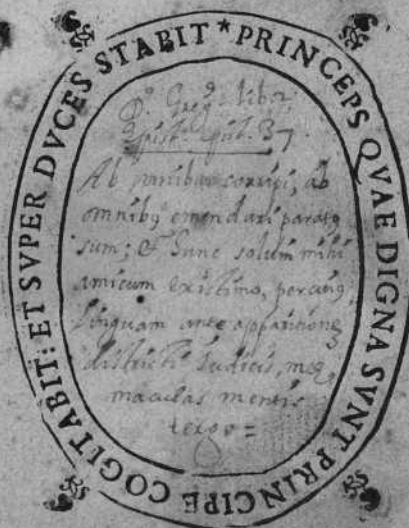 PRINCEPS QVAE DIGNA SVNT PRINCIPE COGITABIT: ET SVPER DVCES STABIT *
D. Greg. libr.
Epist. epist. 37.
Ab omnibus corripi, ab
omnibq emendari paratq
sum; & hunc solum mihi
amicum existimo, per cuiq
linguam ante apparitionez
districti Iudicis, meę
maculas mentis
tergo =